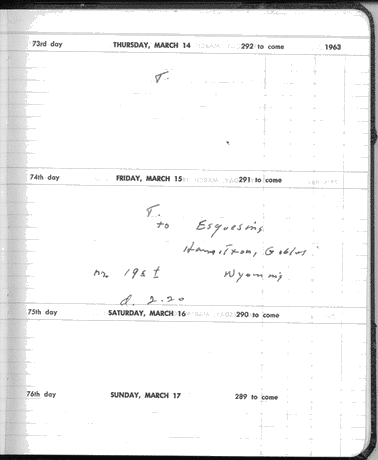 73rd day THURSDAY, MARCH 14 292 to come 1963
T.
74th day FRIDAY, MARCH 15 291 to come
T.
to Esquesing
Hamilton,
on 19st Wyoming
d. 2.20
75th day SATURDAY, MARCH 16 290 to come
76th day SUNDAY, MARCH 17 289 to come